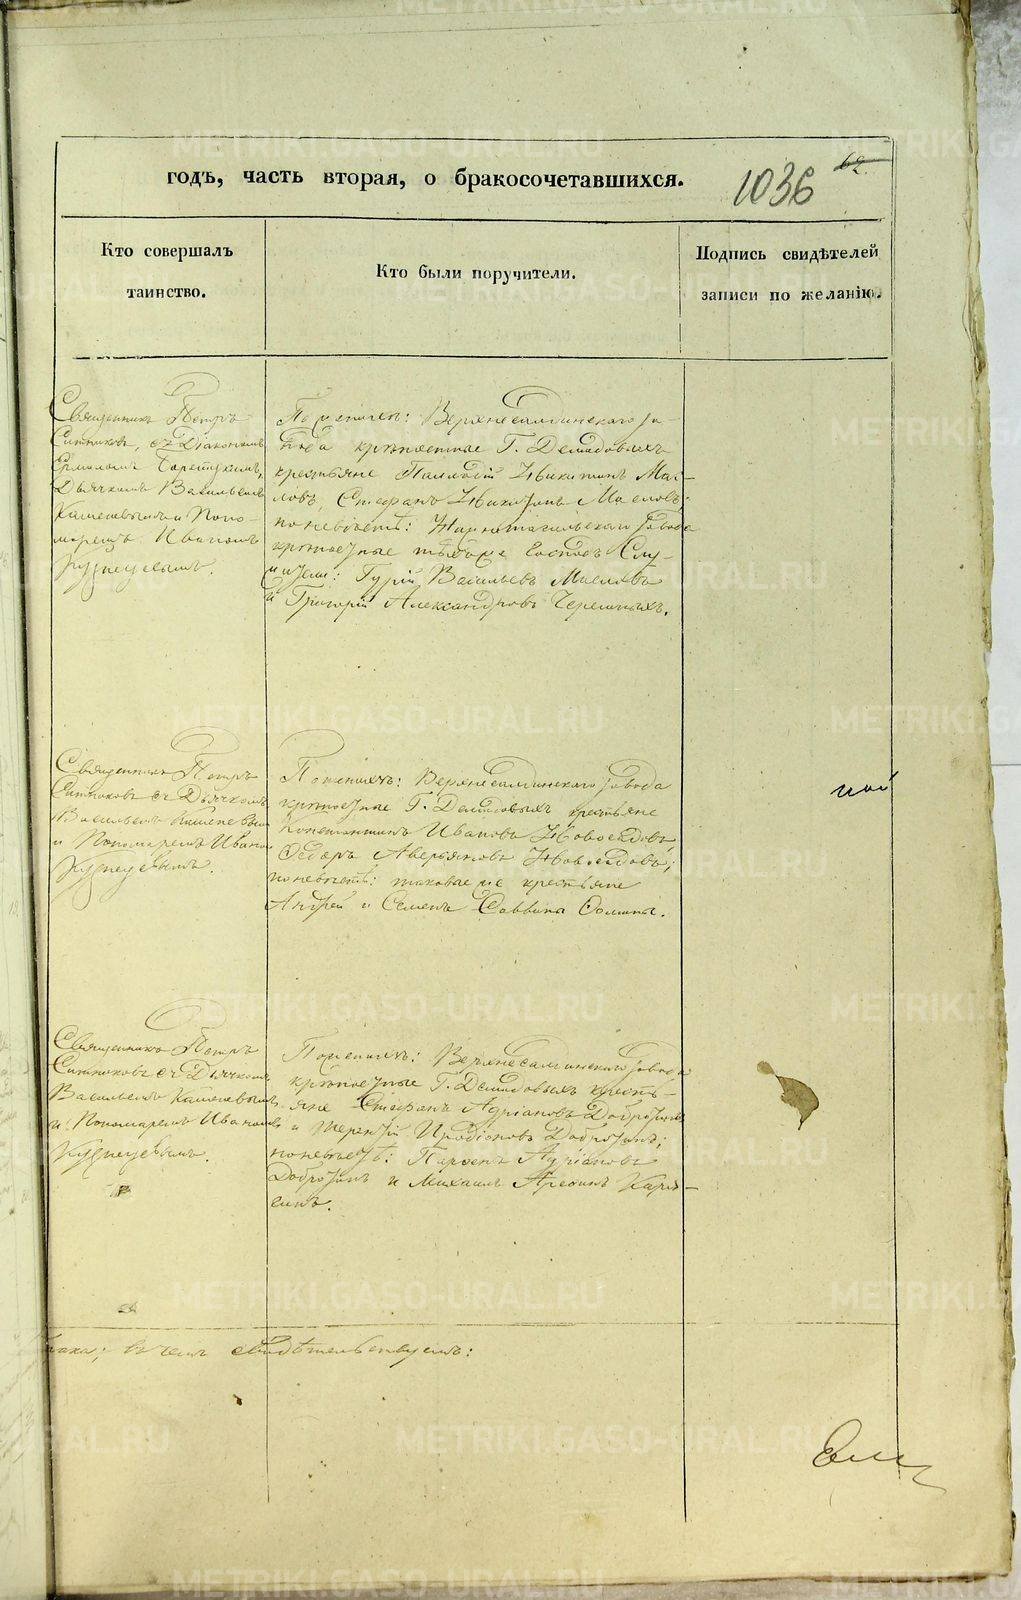 годъ, часть вторая, о бракосочетавшихся.
1036
62.
Кто совершалъ
таинство.
Кто были поручители.
Подпись свидѣтелей
записи по желанію.
Священникъ Петръ
Ситниковъ, съ Діакономъ
Ермолаемъ
Дьячкомъ Васильемъ
Кашеевымъ и Поно-
маремъ Иваномъ
Кузнецовымъ.
По женихѣ: Верхнесалдинскаго за-
вода крѣпостные Г. Демидовыхъ
крестьяне Палладій Никитинъ Мас-
ловъ, Стефанъ Никитинъ Масловъ;
по невѣстѣ: Нижнетагильскаго завода
крѣпостные тѣхъ же Господъ Слу-
жители: Гурій Васильевъ Масловъ
и Григорій Александровъ Черемныхъ.
Священникъ Петръ
Ситниковъ съ Дьячкомъ
Васильемъ Кашеевымъ
и Пономаремъ Иваномъ
Кузнецовымъ.
По женихѣ: Верхнесалдинскаго завода
крѣпостные Г. Демидовыхъ крестьяне
Константинъ Ивановъ Новоселовъ,
Ѳедоръ Аверьяновъ Новоселовъ;
по невѣстѣ: таковые же крестьяне
Андрей и Семенъ Саввины
ной
Священникъ Петръ
Ситниковъ съ Дьячкомъ
Васильемъ Кашеевымъ
и Пономаремъ Иваномъ
Кузнецовымъ.
По женихѣ: Верхнесалдинскаго завода
крѣпостные Г. Демидовыхъ кресть-
яне Стефанъ Адріановъ
и Терентій Иродіоновъ
по невѣстѣ: Парѳенъ Адріановъ
и Михаилъ
брака; въ чемъ свидѣтельствуемъ:
METRIKI.GASO-URAL.RU